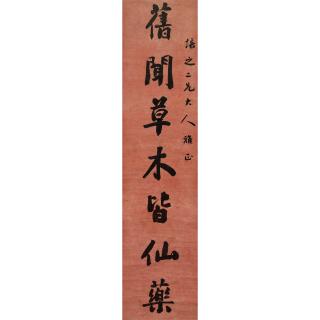 倬之二兄大人雅正
舊聞草木皆仙藥